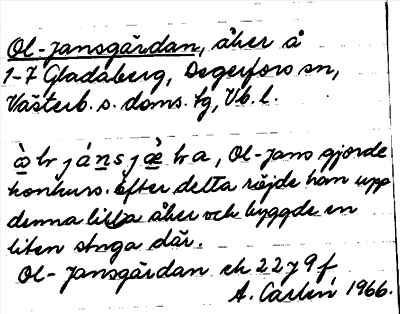 Ol-Jansgärdan, åker å
1-7 Gladaberg, Degerfors sn,
Västerb. s. doms. tg, Vb. l.
Ol-Jans gjorde
konkurs. Efter detta röjde han upp
denna lilla åker och byggde en
liten stuga där.
Ol-Jansgärdan ek 22 j 9 f
A. Carlén 1966.